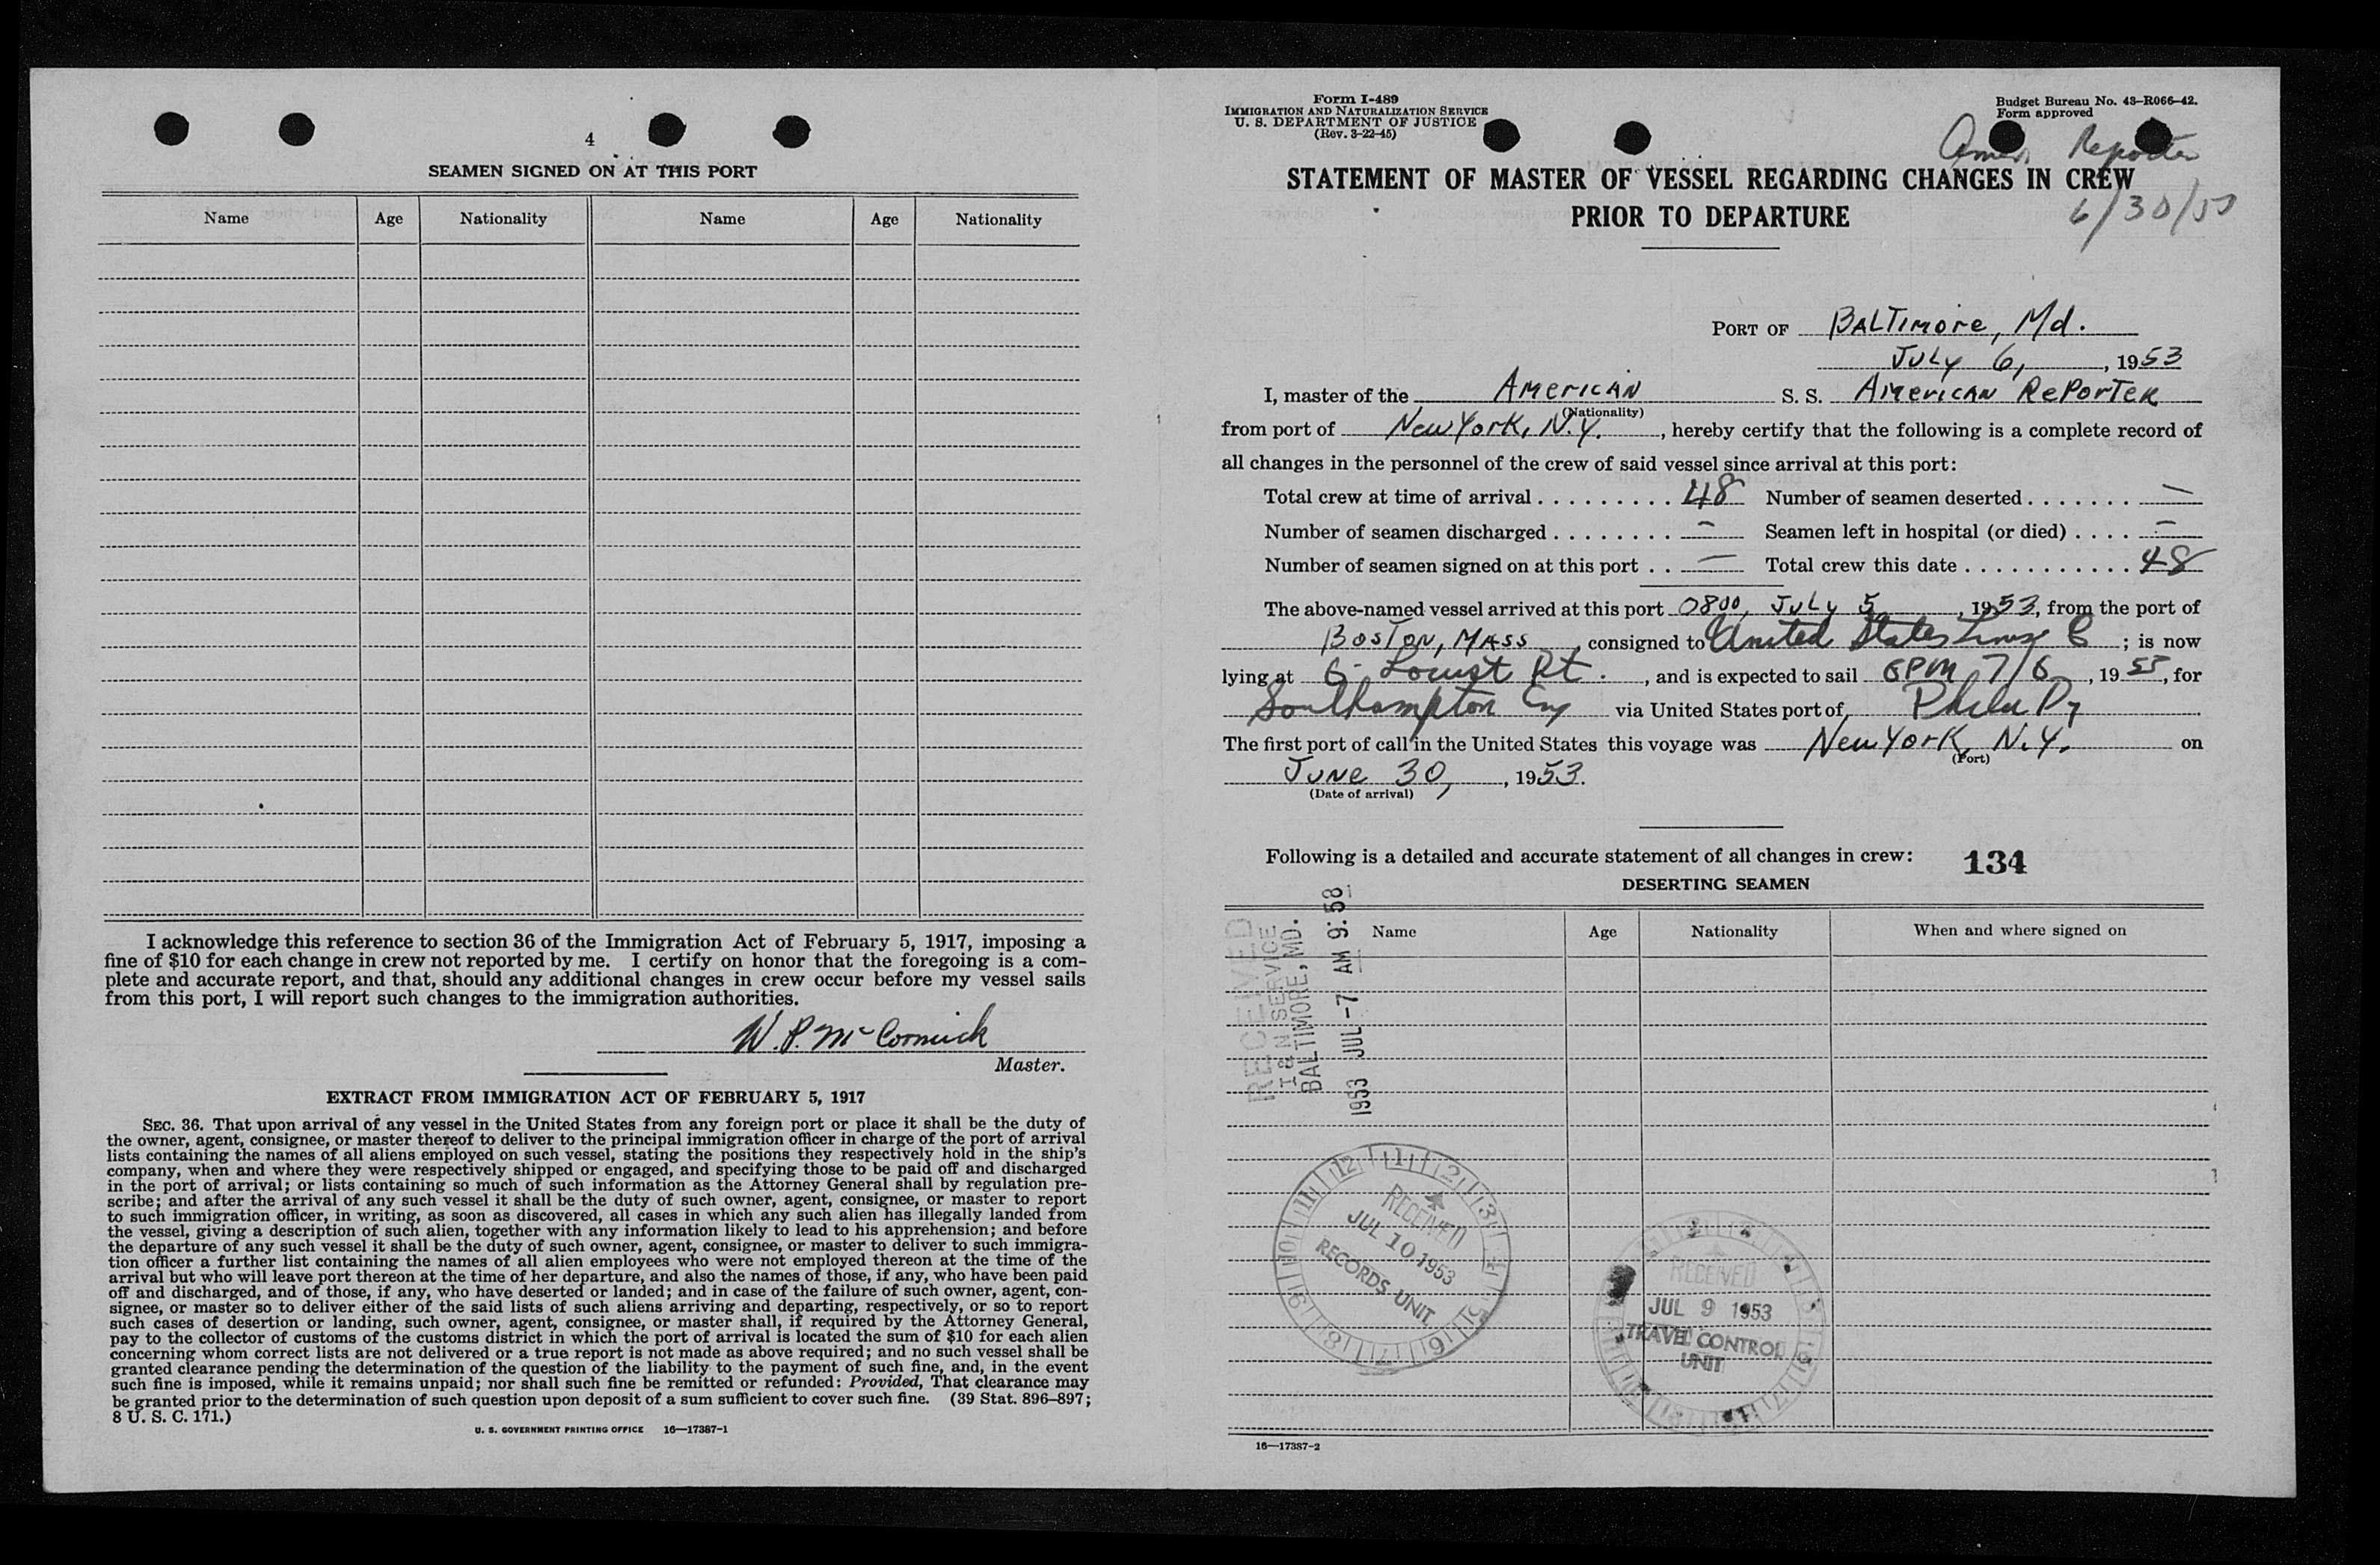 4
SEAMEN SIGNED ON AT THIS PORT
Name Age Nationality Name Age Nationality
I acknowledge this reference to section 36 of the Immigration Act of February 5, 1917, imposing a
fine of $10 for each change in crew not reported by me. I certify on honor that the foregoing is a com-
plete and accurate report, and that, should any additional changes in crew occur before my vessel sails
from this port, I will report such changes to the immigration authorities.
W. P. McCormick
Master.
EXTRACT FROM IMMIGRATION ACT OF FEBRUARY 5, 1917
SEC. 36. That upon arrival of any vessel in the United States from any foreign port or place it shall be the duty of
the owner, agent, consignee, or master thereof to deliver to the principal immigration officer in charge of the port of arrival
lists containing the names of all aliens employed on such vessel, stating the positions they respectively hold in the ship's
company, when and where they were respectively shipped or engaged, and specifying those to be paid off and discharged
in the port of arrival; or lists containing so much of such information as the Attorney General shall by regulation pre-
scribe; and after the arrival of any such vessel it shall be the duty of such owner, agent, consignee, or master to report
to such immigration officer, in writing, as soon as discovered, all cases in which any such alien has illegally landed from
the vessel, giving a description of such alien, together with any information likely to lead to his apprehension; and before
the departure of any such vessel it shall be the duty of such owner, agent, consignee, or master to deliver to such immigra-
tion officer a further list containing the names of all alien employees who were not employed thereon at the time of the
arrival but who will leave port thereon at the time of her departure, and also the names of those, if any, who have been paid
off and discharged, and of those, if any, who have deserted or landed; and in case of the failure of such owner, agent, con-
signee, or master so to deliver either of the said lists of such aliens arriving and departing, respectively, or so to report
such cases of desertion or landing, such owner, agent, consignee, or master shall, if required by the Attorney General,
pay to the collector of customs of the customs district in which the port of arrival is located the sum of $10 for each alien
concerning whom correct lists are not delivered or a true report is not made as above required; and no such vessel shall be
granted clearance pending the determination of the question of the liability to the payment of such fine, and, in the event
such fine is imposed, while it remains unpaid; nor shall such fine be remitted or refunded: Provided, That clearance may
be granted prior to the determination of such question upon deposit of a sum sufficient to cover such fine. (39 Stat. 896–897;
8 U. S. C. 171.)
U. S. GOVERNMENT PRINTING OFFICE 16—17387-1
Form I-489
IMMIGRATION AND NATURALIZATION SERVICE
U. S. DEPARTMENT OF JUSTICE
(Rev. 3-22-45)
Budget Bureau No. 43-R066-42.
Form approved
Amer. Reporter
6/30/53
STATEMENT OF MASTER OF VESSEL REGARDING CHANGES IN CREW
PRIOR TO DEPARTURE
PORT OF BALTIMORE, Md.
JULY 6, , 1953
I, master of the AMERICAN S. S. AMERICAN REPORTER
(Nationality)
from port of New York, N.Y. , hereby certify that the following is a complete record of
all changes in the personnel of the crew of said vessel since arrival at this port:
Total crew at time of arrival . . . . . . . . . 48 Number of seamen deserted . . . . . . . —
Number of seamen discharged . . . . . . . . — Seamen left in hospital (or died) . . . . —
Number of seamen signed on at this port . . — Total crew this date . . . . . . . . . . . 48
The above-named vessel arrived at this port 0800, JULY 5 , 1953, from the port of
BOSTON, MASS , consigned to United States Lines Co ; is now
lying at 6 Locust Pt. , and is expected to sail 6PM 7/6 , 1953, for
Southampton Eng via United States port of Phila Pa
The first port of call in the United States this voyage was New York, N.Y. on
(Port)
JUNE 30, , 1953.
(Date of arrival)
Following is a detailed and accurate statement of all changes in crew: 134
DESERTING SEAMEN
Name Age Nationality When and where signed on
RECEIVED
I & N SERVICE
BALTIMORE, MD.
1953 JUL -7 AM 9:58
12 1 2 3 4 5 6 7 8 9 10 11
RECEIVED
JUL 10 1953
RECORDS UNIT
RECEIVED
JUL 9 1953
TRAVEL CONTROL
UNIT
16—17387-2